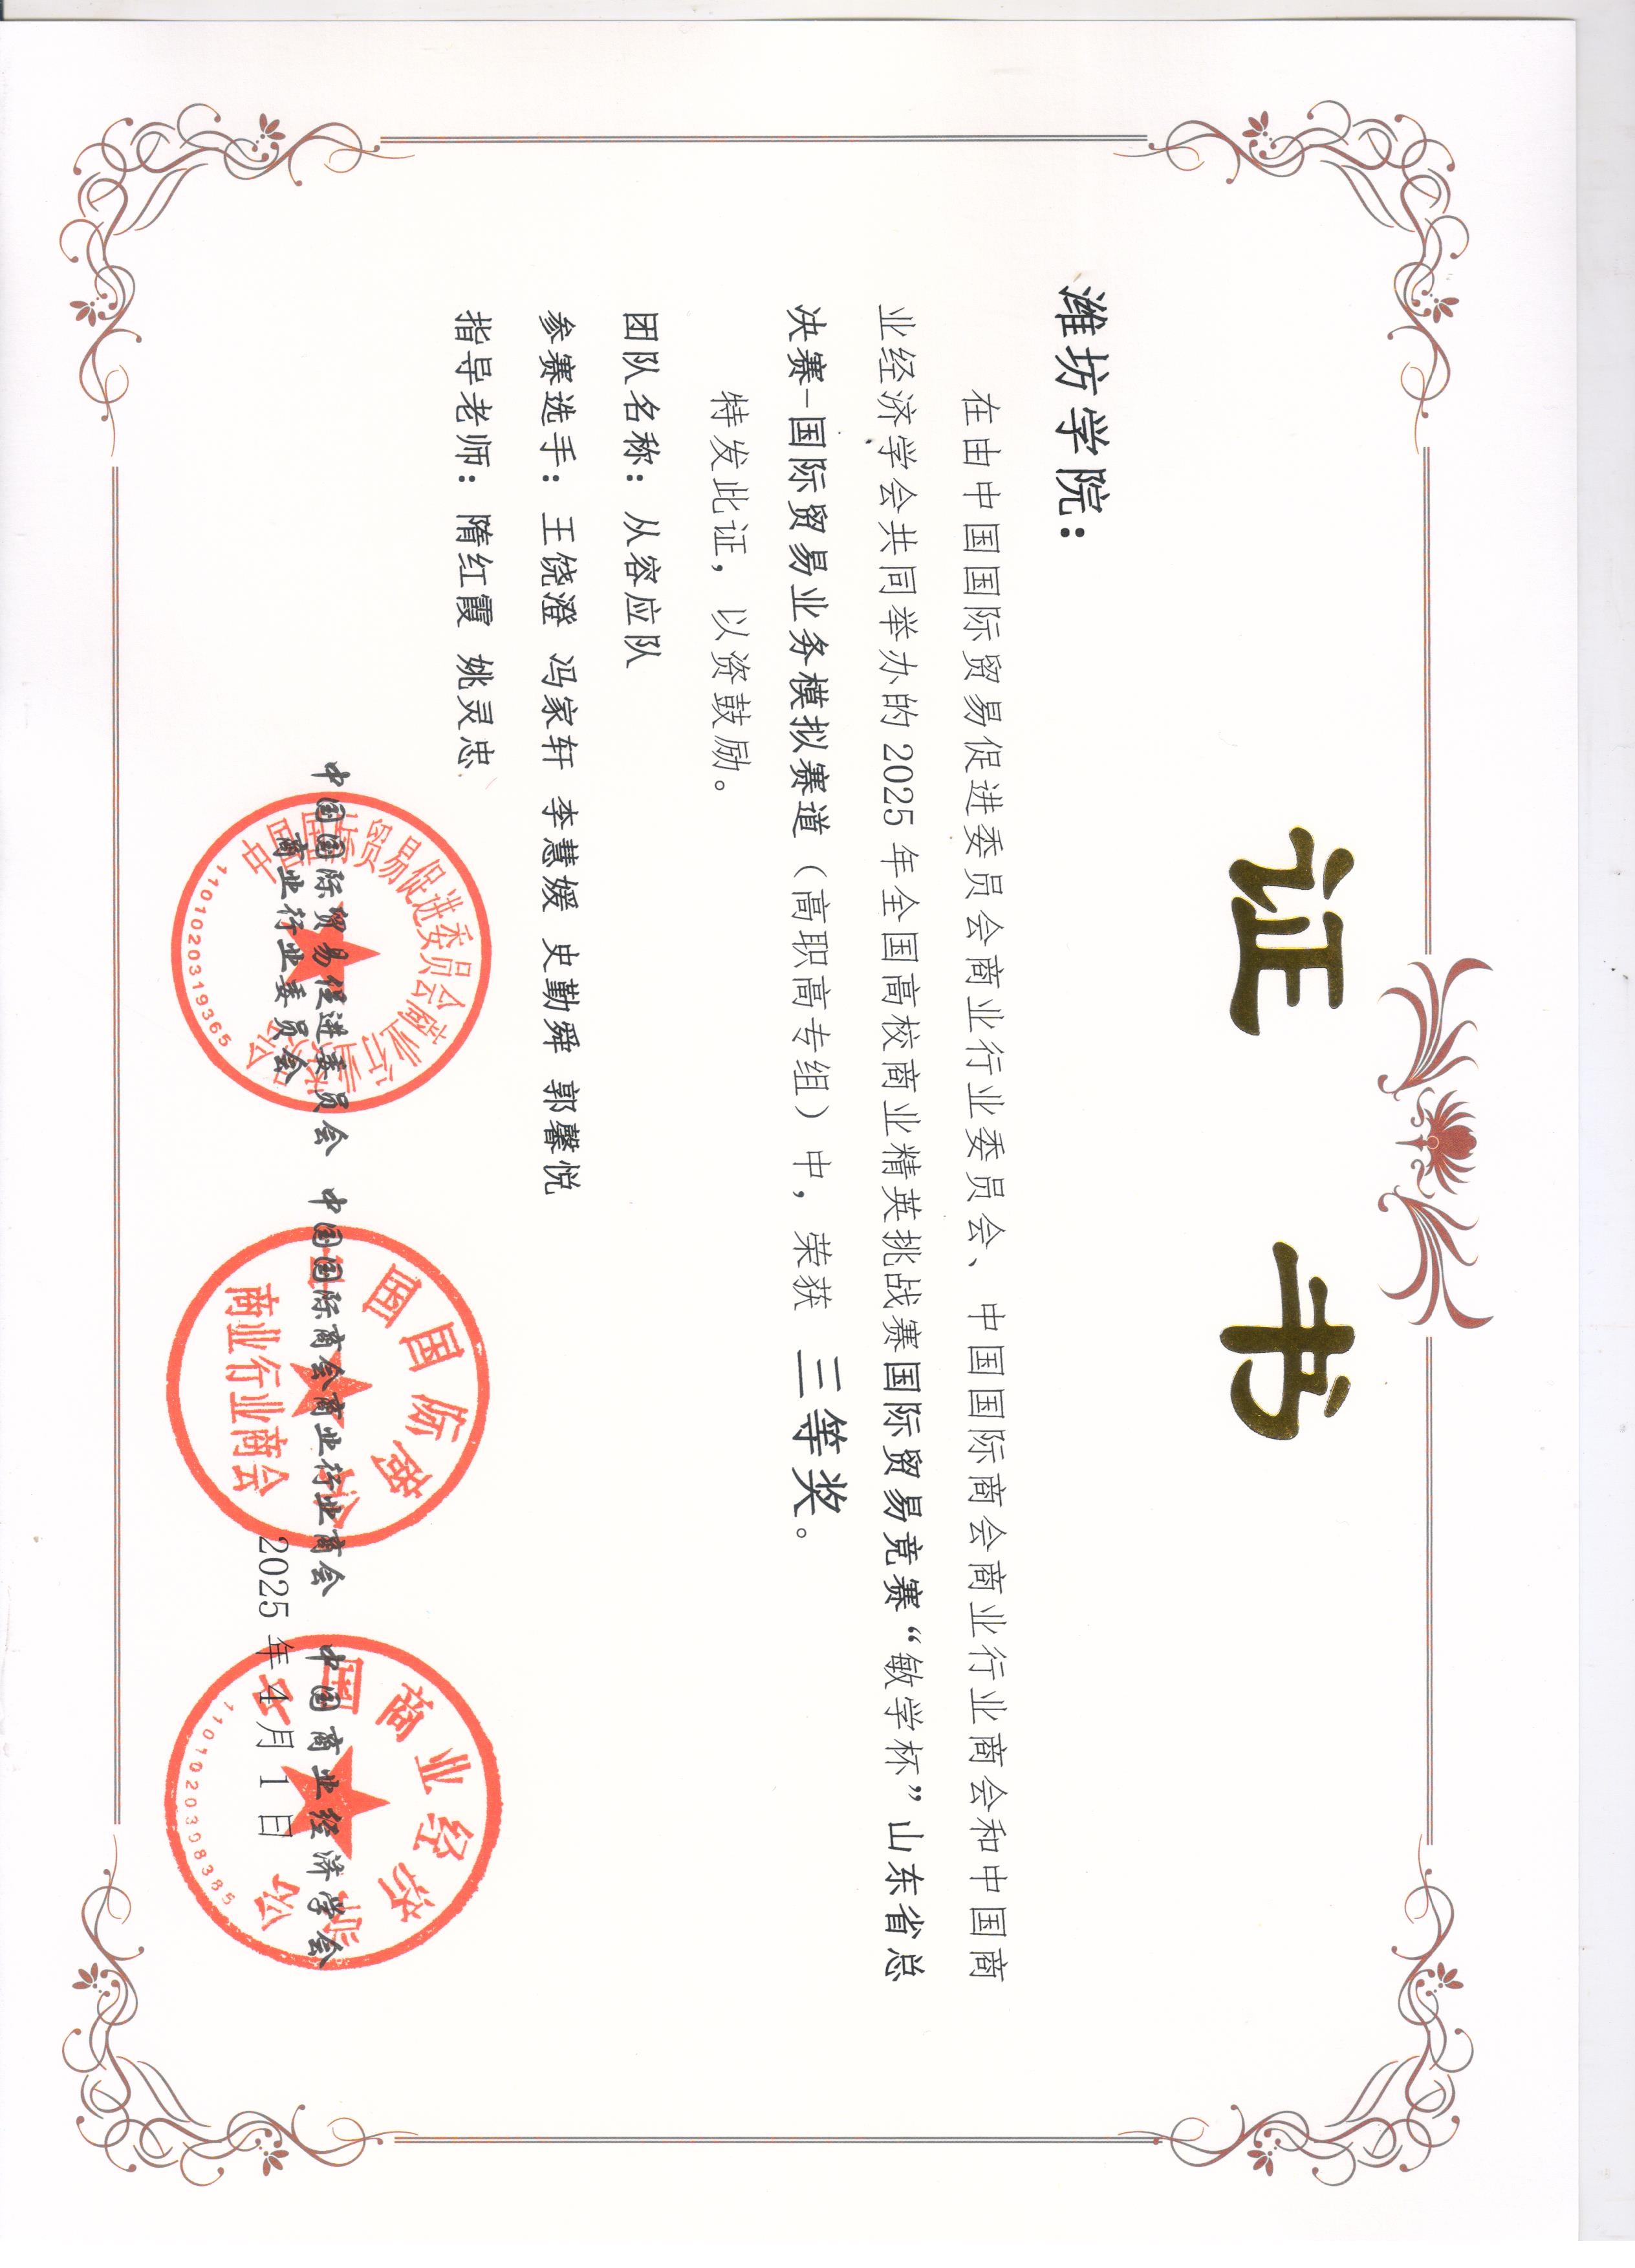 证 书
潍坊学院：
在由中国国际贸易促进委员会商业行业委员会、中国国际商会商业行业商会和中国商
业经济学会共同举办的2025年全国高校商业精英挑战赛国际贸易竞赛“敏学杯”山东省总
决赛-国际贸易业务模拟赛道（高职高专组）中，荣获 三等奖。
特发此证，以资鼓励。
团队名称：从容应队
参赛选手：王饶澄 冯家轩 李慧媛 史勤舜 郭馨悦
指导老师：隋红霞 姚灵忠
中国国际贸易促进委员会 中国国际商会商业行业商会 中国商业经济学会
商业行业委员会
2025年4月1日
中国国际贸易促进委员会商业行业委员会
1101020319365
中国国际商会
商业行业商会
中国商业经济学会
1101020308385